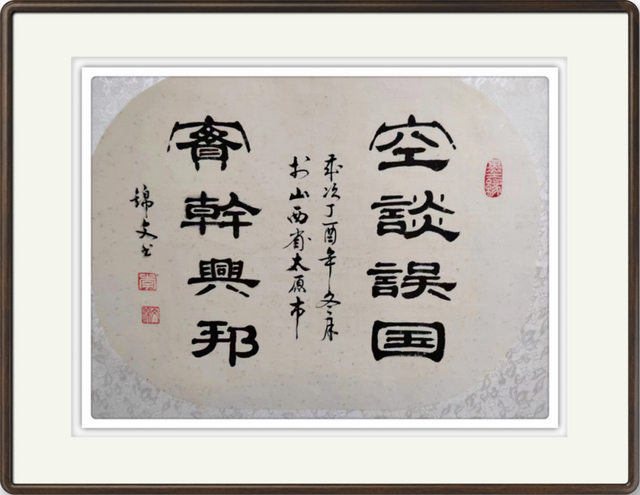 空談誤国
歲次丁酉年冬月
於山西省太原市
實幹興邦
錦文书